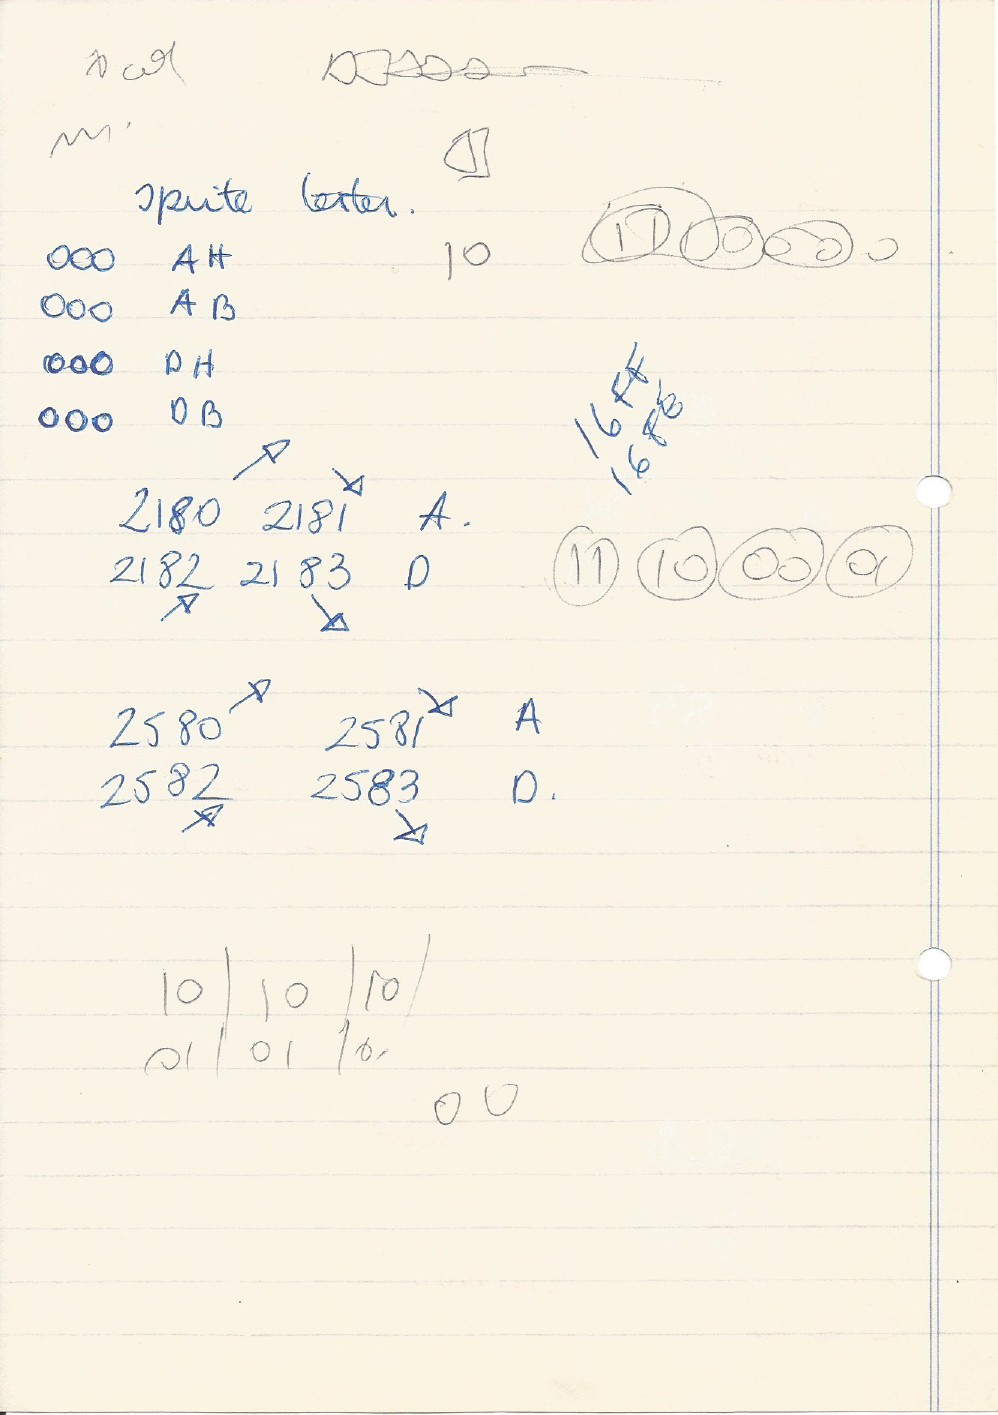 sprite tester.
10
11 10 00 0
000 AH
000 AB
000 DH
000 DB
16FF
16FB
2180 2181 A.
2182 2183 D
11 10 00 01
2580 2581 A
2582 2583 D.
10 / 10 / 10 /
01 / 01 / 0
00